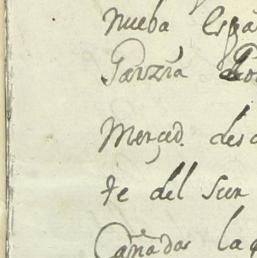 nueba Espa
Garzia
Merçed. des
te del sur
Cañadas la